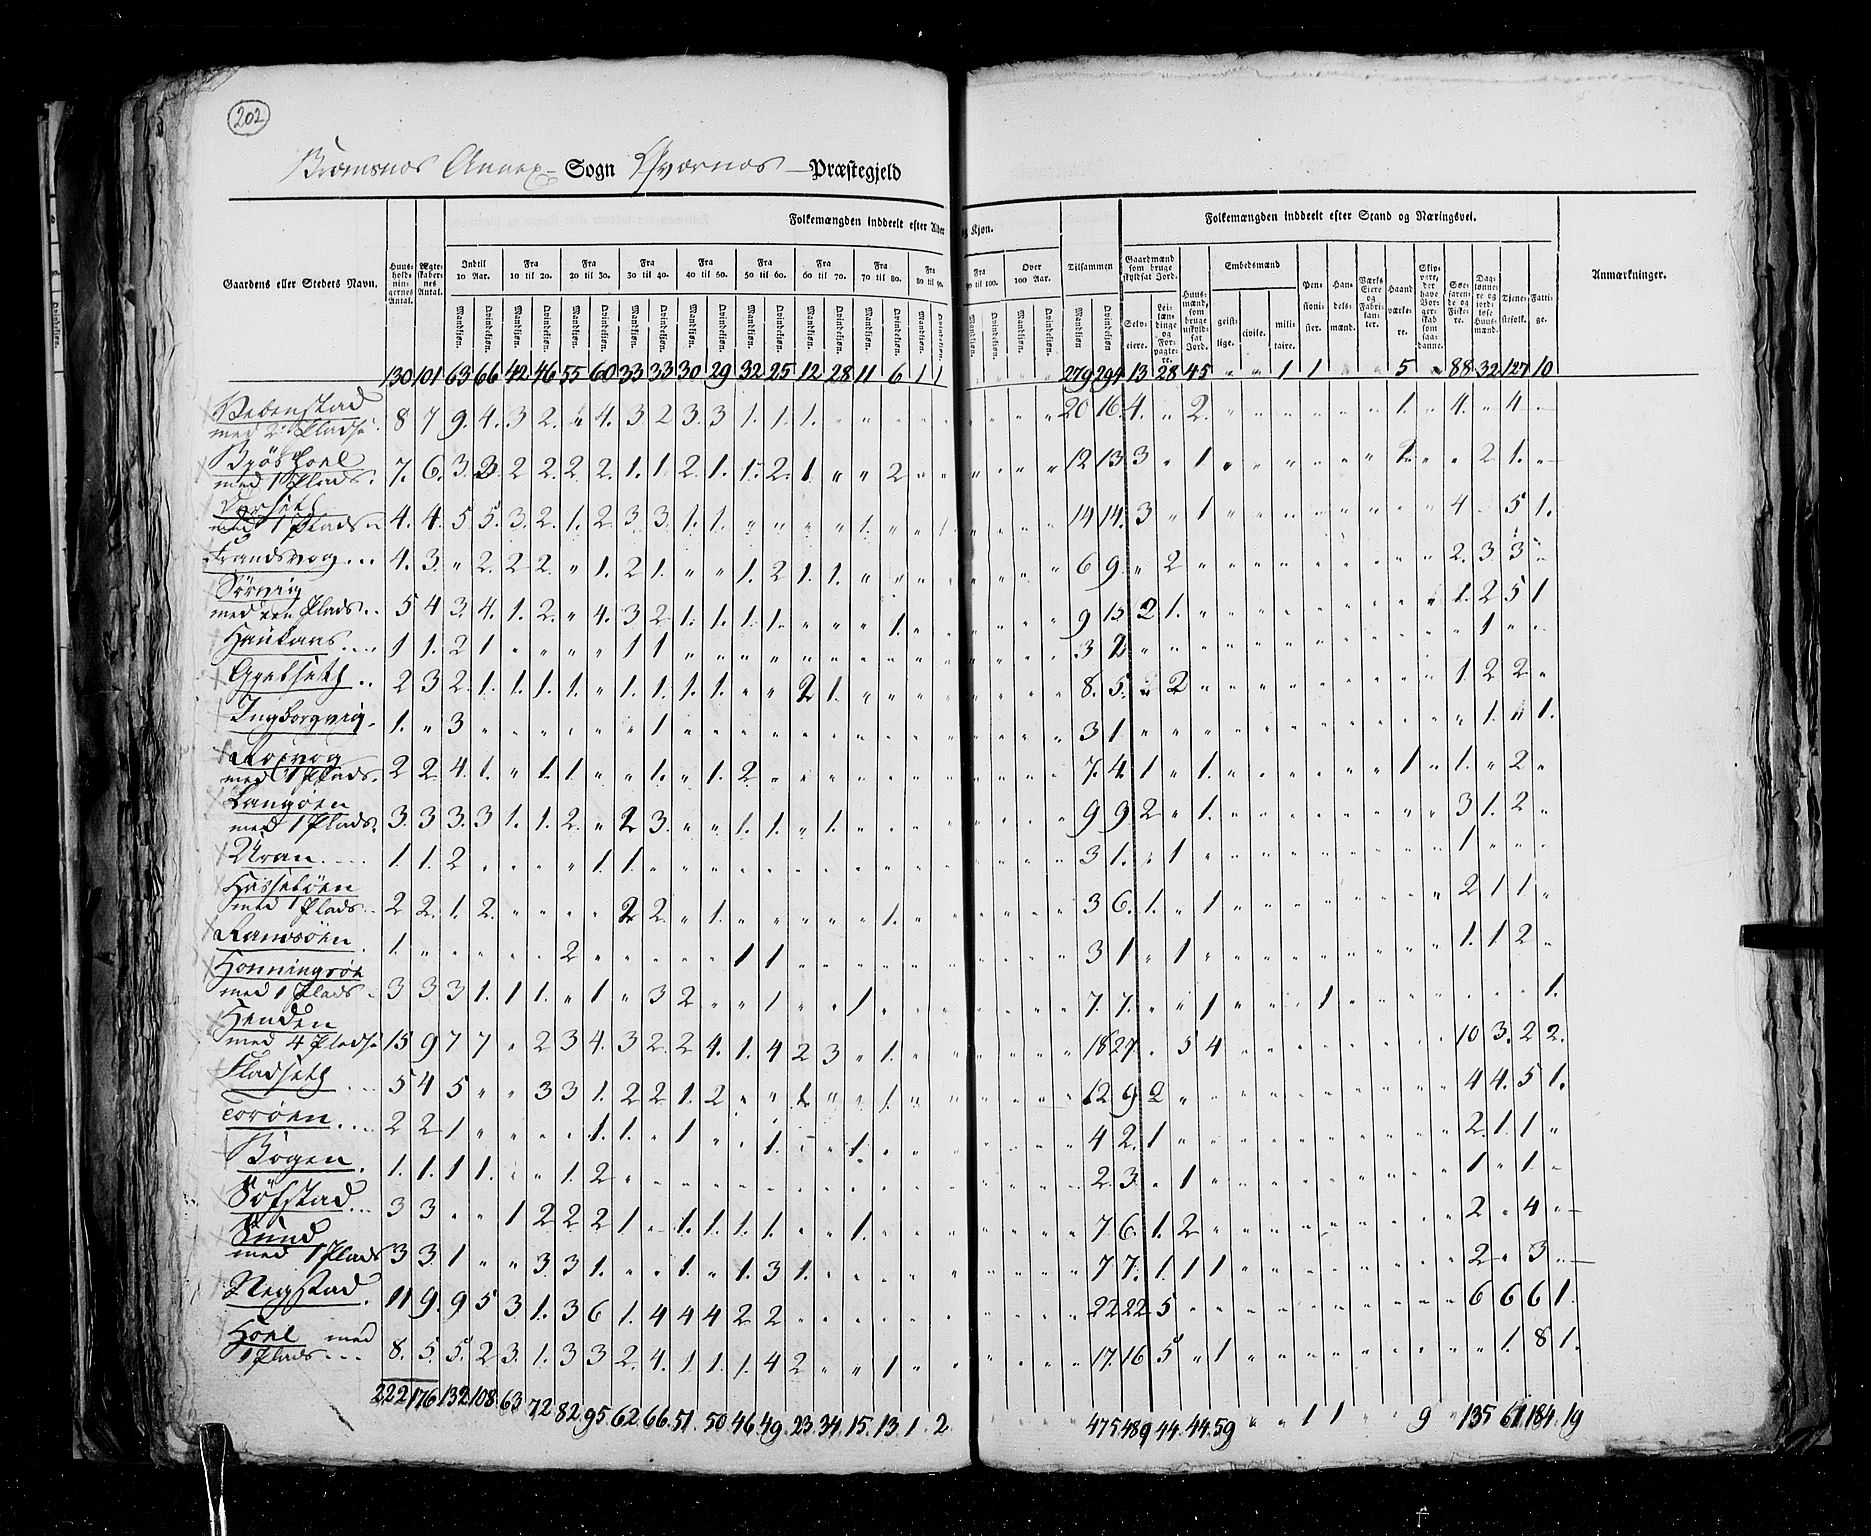 202
Bremsnæs Annex- Sogn Qværnæs Præstegjeld
Gaardens eller Stedets Navn.
Huus-holdnin-gernes Antal.
Ægte-skaber-nes Antal.
Folkemængden inddeelt efter Alder og Kjøn.
Indtil 10 Aar. Fra 10 til 20. Fra 20 til 30. Fra 30 til 40. Fra 40 til 50. Fra 50 til 60. Fra 60 til 70. Fra 70 til 80. Fra 80 til 90. Fra 90 til 100. Over 100 Aar. Tilsammen
Mandkiøn. Qvindekiøn.
Folkemængden inddeelt efter Stand og Næringsvei.
Gaardmænd som bruge skyldsat Jord.
Selv-eiere. Lei-læn-dinge og For-pagte-re.
Huus-mænd, som bruge uskyld-sat Jord.
Embedsmænd
geist-lige. civile. mili-taire.
Pen-sioni-ster. Han-dels-mænd. Værks Eiere og Fabri-kan-ter. Haand-værke-re. Skip-pere, der have Bor-ger-skab som saa-danne. Søe-farende og Fiske-re. Dag-lønne-re og jord-løse Huus-mænd. Tjene-stefolk. Fatti-ge.
Anmærkninger.
130 101 63 66 42 46 55 60 33 33 30 29 32 25 12 28 11 6 1 1 279 294 13 28 45 " " 1 1 " " 5 " 88 32 127 10
Vebenstad med 2 Pladse 8 7 9. 4. 3 2. " 4. 3 2 3 3 1. 1. 1. 20 16 4. " 2. 1. " 4. " 4
med 1 Plads. 7. 6. 3. 3 2 2. 2. 2. 1. 1. 2. 1. 1. 2. 1. " " 2 12 13 3 " 1 1. " " 2 1.
med 1 Plads 4. 4. 5 5. 3. 2. 1. 2. 3 3. 1. 1. " " " " 1. 14 14. 3 " 1 4 5 1.
4. 3. " 2. 2 2. " 1. 2 1. " " 1. 2 1. 1. 6 9. " 2 2. 3 3
Sörvig med een Plads 5 4 3. 4. 1. 2. " 4. 3 2. 1. 1. 1. 1. 1. 9 15 2 1. 1. 2 5 1
Haukaas 1 1. 2 1 " " " " 1 1 3 2 1
Gretseth 2 3 2. 1. 1. 1. 1. " 1. 1. 1. 1. " " 2 1. 8. 5. " 2 1 2 2
Ingborgvig 1. " 3 1 3 1 " 1. " 1.
med 1 Plads. 2 2 4. 1. " 1. 1. " " 1. " 1. 2 7. 4. 1 " 1. 1 " 1. " 2
Langöen med 1 Plads. 3. 3 3. 3 1. 1. 2. " 2 3. " " 1. 1. " 1. 9 9 2 " 1. 3 1. 2
Uran 1. 1. 2 1. 1. 3 1. " 1 1
med 1 Plads 2 2. 1. 2. " " " " 2 2. " 1. 1. 3 6. 1. " 1 2 1 1
Ramsöen 1. 2 1 1 3 1 " 1 1. 1 2
med 1 Plads 3 3. 3 1. 1 1. " 1 " 3 2 " " 1 1 7. 7. " " 1 1 1.
Henden med 4 Pladse 15 9 7 7 " 2 3 4. 3 2. 2 4. 1. 4 2 3 " 1. 18 27 " 5 4 10 3. 2 2.
Fladseth 5 4 5 " " 3 3 1. 2 2. 1. 2 " " 1 " " 1. 12 9 2 4 4. 5 1.
Toröen 2 2 1 1. 1. " 1 1. 1. 4 2. 1 2. 1. 1
Bögen 1. 1. 1 1. 1. 2 2 3. " 1 1 " 1.
Söfstad 3 3 " " 1 2 2 2 1 " 1. 1. 1. 1. 1. 7 6 1. 2 2 " 4
Sund med 1 Plads 3 3. 1 " " 3 3 1. " " 1. " 1. 3 1. 7 7. 1. 1 1 2 " 3
Negstad. 11 9. 9 5 3 1. 3 6 1. 4 4 4 2 2 22 22 5 6 6 6 1.
Hoel med 1 Plads 8. 5. 5. 2 3. 1. 3 3 2. 4. 1 1. 1. 4 2 " " 1 17 16 5 " 1 1. 8 1.
222 176 132 108 63 72 82 95 62 66 51 50 46 49 23 34 15 13 1 2 475 489 44 44 59 " " 1 1 9 " 135 61 184 19